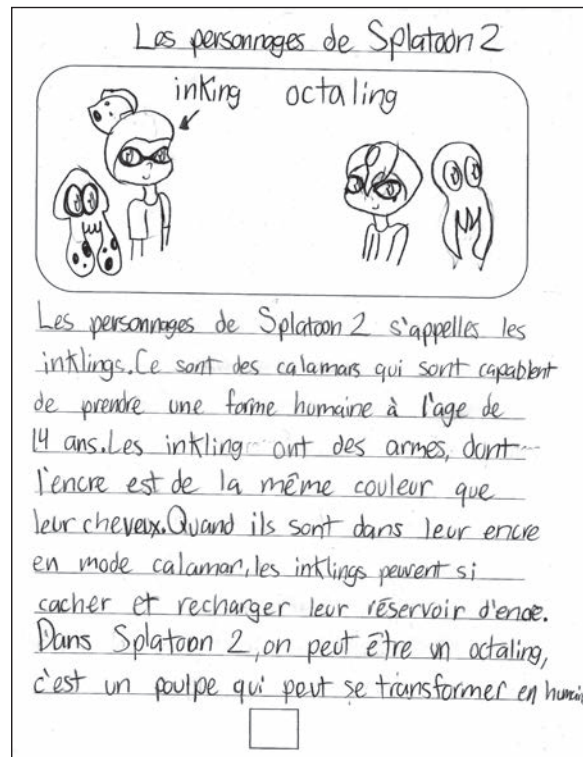 Les personnages de Splatoon 2
inking octaling
Les personnages de Splatoon 2 s'appelles les
inklings. Ce sont des calamars qui sont capablent
de prendre une forme humaine à l'age de
14 ans. Les inkling ont des armes, dont
l'encre est de la même couleur que
leur cheveux. Quand ils sont dans leur encre
en mode calamar, les inklings peuvent si
cacher et recharger leur réservoir d'encre.
Dans Splatoon 2, on peut être un octaling,
c'est un poulpe qui peut se transformer en humain